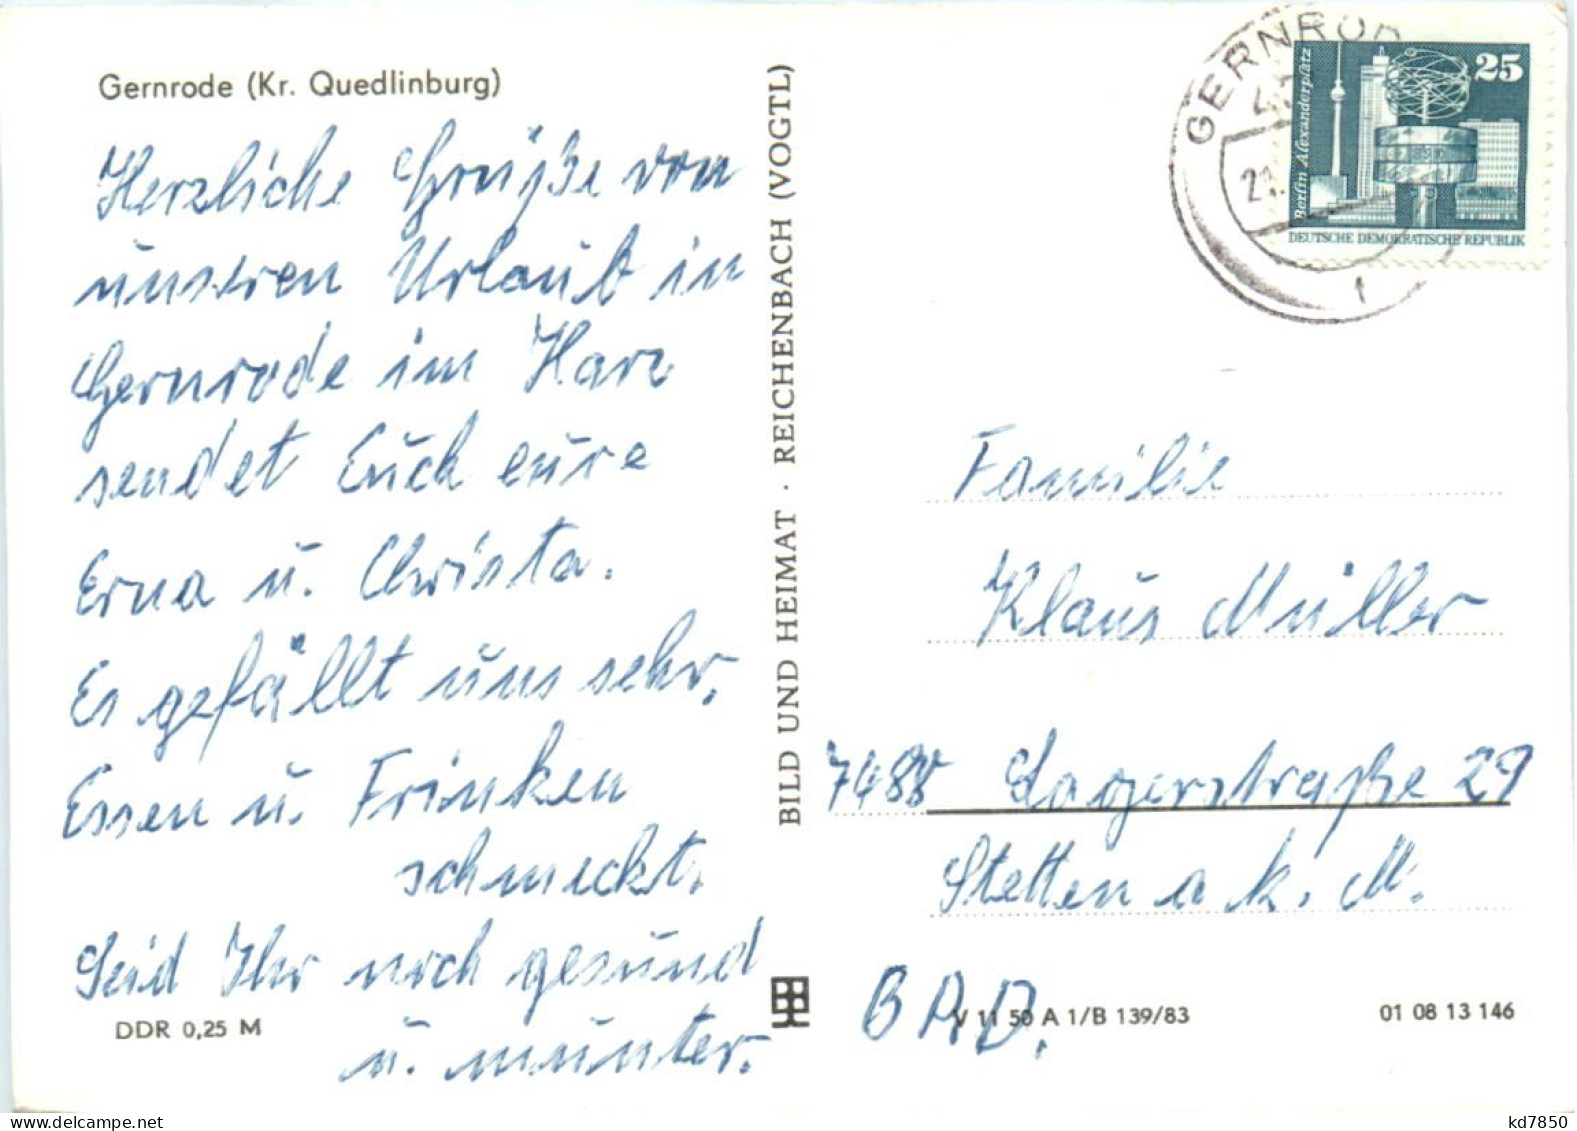 Gernrode (Kr. Quedlinburg)
Herzliche Grüße von
unseren Urlaub in
Gernrode im Harz
sendet Euch eure
Erna u. Christa.
Es gefällt uns sehr.
Essen u. Trinken
schmeckt.
Seid Ihr noch gesund
u. munter.
DDR 0,25 M
BILD UND HEIMAT · REICHENBACH (VOGTL)
GERNROD
21.
25
Berlin Alexanderplatz
DEUTSCHE DEMOKRATISCHE REPUBLIK
Familie
Klaus Müller
7488 Lagerstraße 29
Stetten a. k. M.
BRD.
V 11 50 A 1/B 139/83
01 08 13 146
www.delcampe.net
kd7850